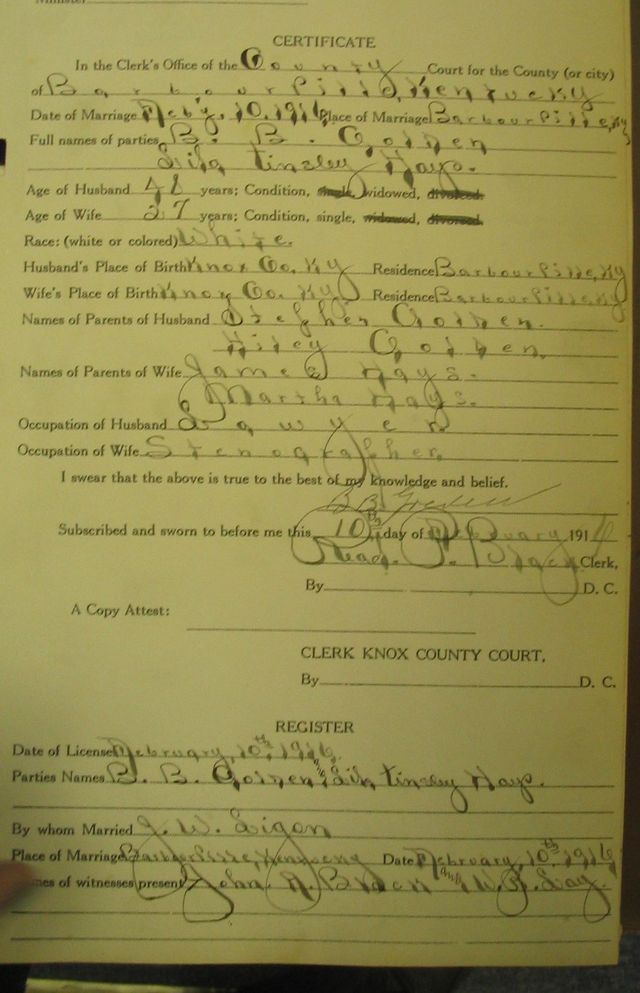 CERTIFICATE
In the Clerk's Office of the County Court for the County (or city)
of Barbourville, Kentucky
Date of Marriage Feb'y, 10, 1916, Place of Marriage Barbourville, Ky
Full names of parties B. B. Golden
Tinsley Hays.
Age of Husband 48 years; Condition, single, widowed, divorced.
Age of Wife 27 years; Condition, single, widowed, divorced.
Race: (white or colored) White.
Husband's Place of Birth Knox Co. Ky Residence Barbourville, Ky
Wife's Place of Birth Knox Co. Ky Residence Barbourville, Ky
Names of Parents of Husband Stephen Golden.
Golden,
Names of Parents of Wife James Hays.
Martha Hays.
Occupation of Husband Lawyer
Occupation of Wife Stenographer,
I swear that the above is true to the best of my knowledge and belief.
B B Golden
Subscribed and sworn to before me this 10th day of February 1916
Read. P. Black Clerk,
By D. C.
A Copy Attest:
CLERK KNOX COUNTY COURT,
By D. C.
REGISTER
Date of License February, 10th, 1916,
Parties Names B. B. Golden, and Tinsley Hays.
By whom Married J. W. Ligon
Place of Marriage Barbourville, Kentucky Date February, 10th, 1916
of witnesses present John and W.